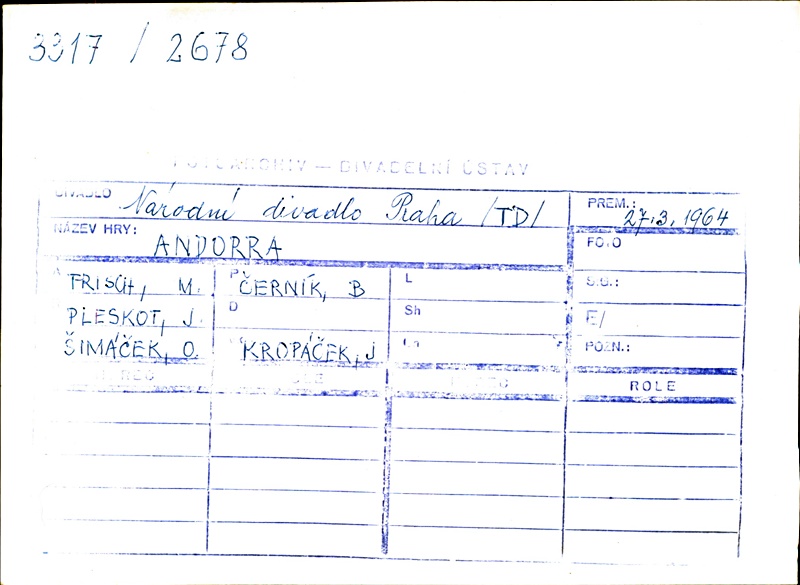 3317 / 2678
FOTOARCHIV — DIVADELNÍ ÚSTAV
DIVADLO Národní divadlo Praha /TD/
PREM.: 27.3.1964
NÁZEV HRY: ANDORRA
FOTO
A FRISCH, M.
P ČERNÍK, B
L
S.G.:
PLESKOT, J.
D
Sh
E/
ŠIMÁČEK, O.
KROPÁČEK, J
POZN.:
HEREC
ROLE